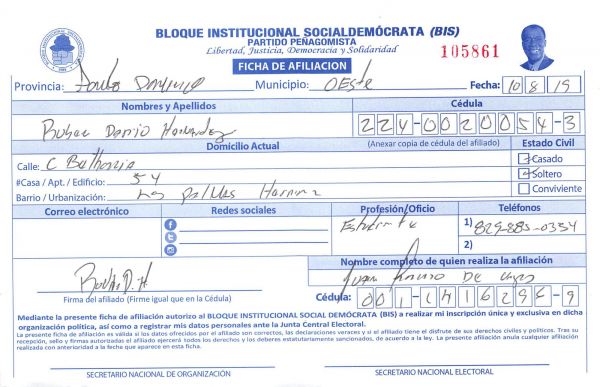 BLOQUE INSTITUCIONAL SOCIALDEMÓCRATA (BIS)
PARTIDO PEÑAGOMISTA
Libertad, Justicia, Democracia y Solidaridad
FICHA DE AFILIACION
105861
Provincia: Santo Domingo Municipio: OESte Fecha: 10/8/19
Nombres y Apellidos Cédula
Dario Hernandez 224-0020054-3
Domicilio Actual (Anexar copia de cédula del afiliado) Estado Civil
Calle: C
#Casa / Apt. / Edificio: 54
Barrio / Urbanización: Las palmas Herrera
Casado
Soltero
Conviviente
Correo electrónico Redes sociales Profesión/Oficio Teléfonos
Estudiante
1) 829-885-0334
2)
Nombre completo de quien realiza la afiliación
Firma del afiliado (Firme igual que en la Cédula)
Cédula: 001-1416296-9
Mediante la presente ficha de afiliación autorizo al BLOQUE INSTITUCIONAL SOCIAL DEMÓCRATA (BIS) a realizar mi inscripción única y exclusiva en dicha
organización política, así como a registrar mis datos personales ante la Junta Central Electoral.
La presente ficha de afiliación es válida si los datos ofrecidos por el afiliado son correctos, las declaraciones veraces y si el afiliado tiene el disfrute de sus derechos civiles y políticos. Tras su
recepción, sello y firmas autorizadas el afiliado ejercerá todos los derechos y los deberes estatutariamente sancionados, de acuerdo a la ley. La presente afiliación anula cualquier afiliación
realizada con anterioridad a la fecha que aparece en esta ficha.
SECRETARIO NACIONAL DE ORGANIZACIÓN SECRETARIO NACIONAL ELECTORAL